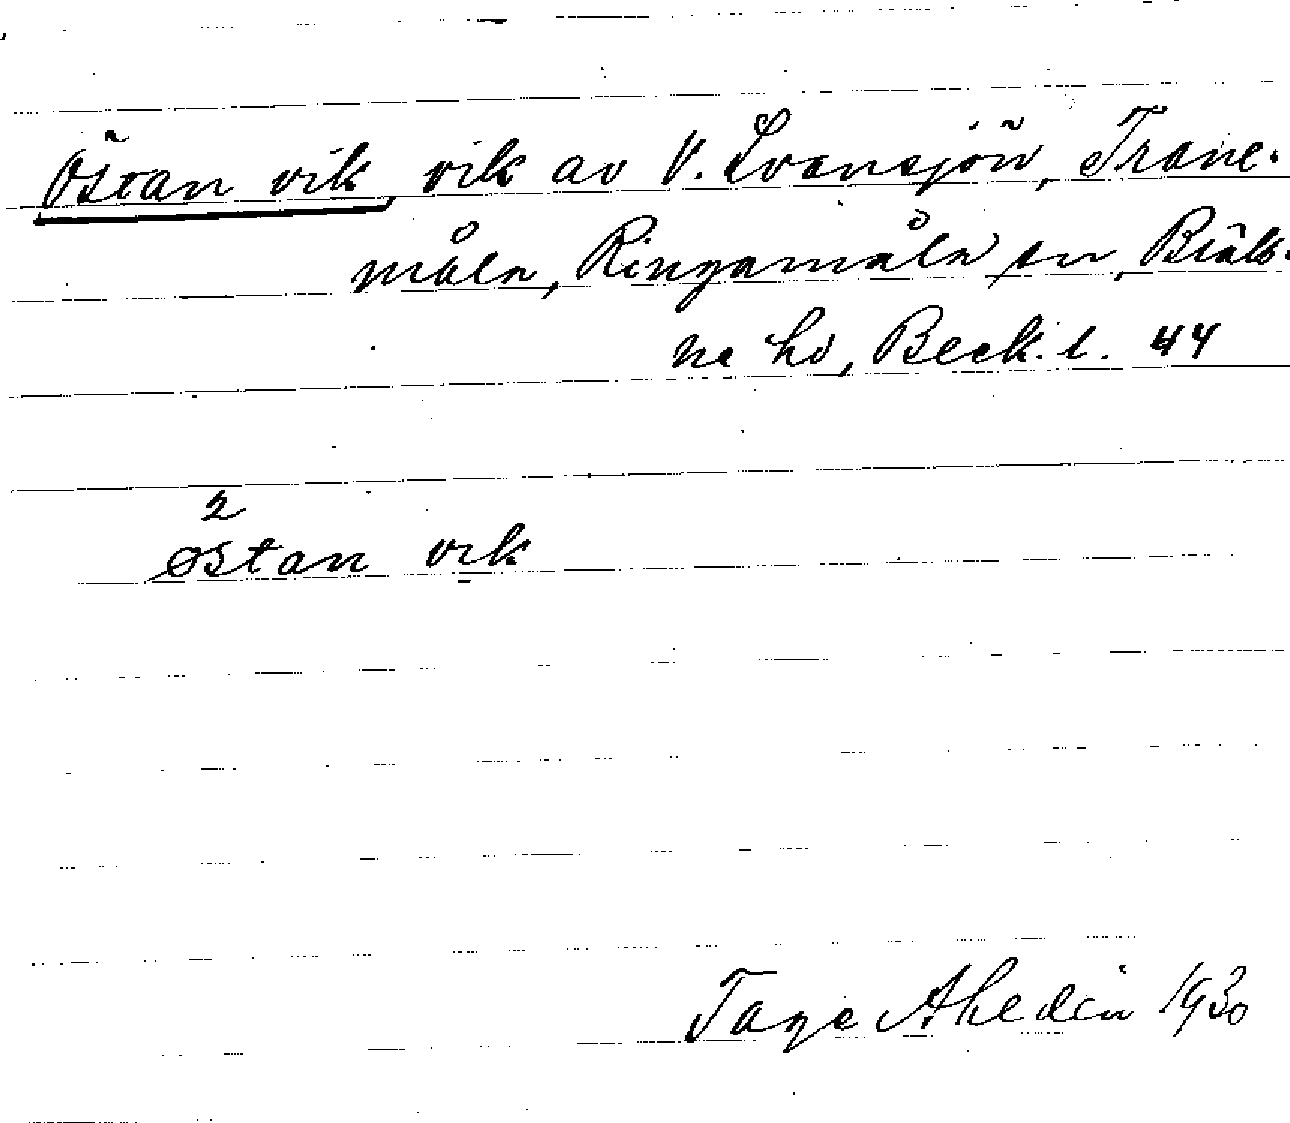 Östan vik vik av V. Svansjön, Trane-
måla, Ringamåla sn, Bräk-
ne hd, Bleck. l. 44
2
østan vik
Tage Ahldin 1930